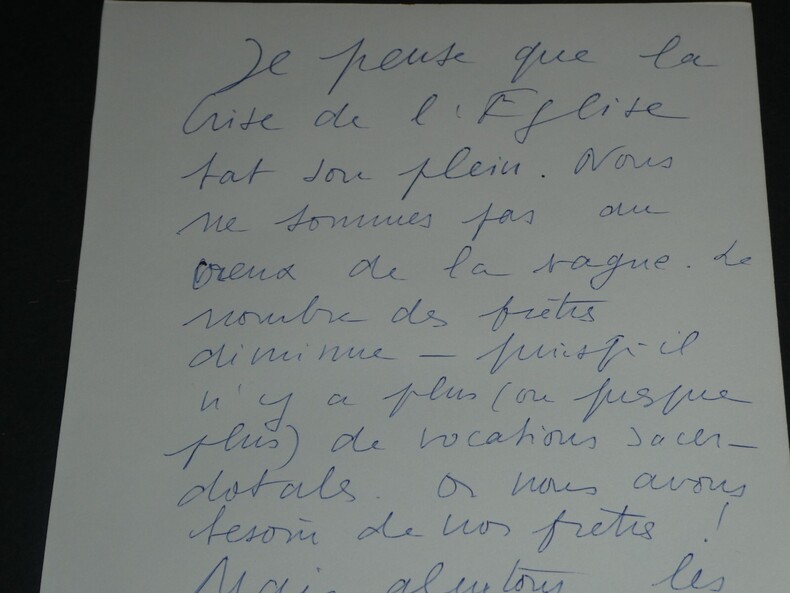 Je pense que la
Crise de l'Eglise
bat son plein. Nous
ne sommes pas au
creux de la vague. Le
nombre des prêtres
diminue — puisqu'il
n'y a plus (ou presque
plus) de vocations sacer-
dotales. Or nous avons
besoin de nos prêtres !
Mais les